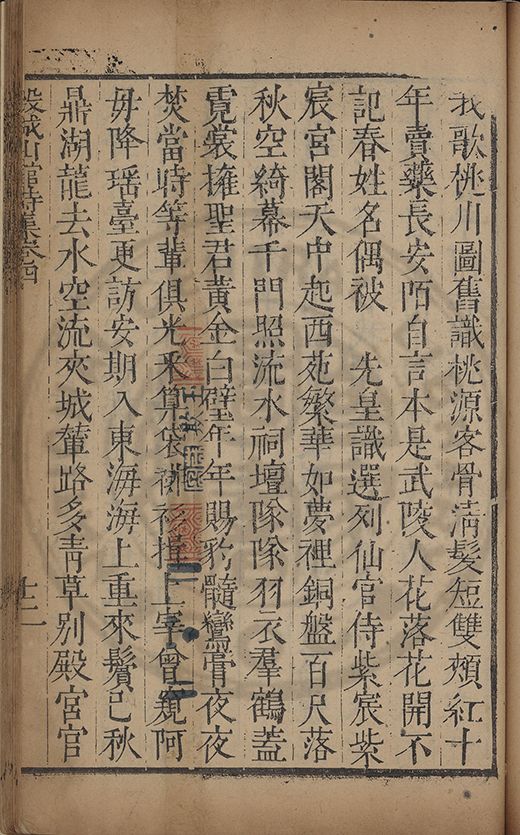 我歌桃川圖舊識桃源客骨淸髮短雙頰紅十
年賣藥長安陌自言本是武陵人花落花開不
記春姓名偶被　先皇識選列仙官侍紫宸紫
宸宮閣天中起西苑繁華如夢裡銅盤百尺落
秋空綺幕千門照流水祠壇隊隊羽衣羣鶴蓋
霓裳擁聖君黃金白璧年年賜豹髓鸞膏夜夜
焚當時等輩俱光釆算上宰曾窺阿
毋降瑶臺更訪安期入東海海上重來鬢已秋
鼎湖龍去水空流夾城輦路多靑草別殿宮官
穀城山館詩集卷四
十二